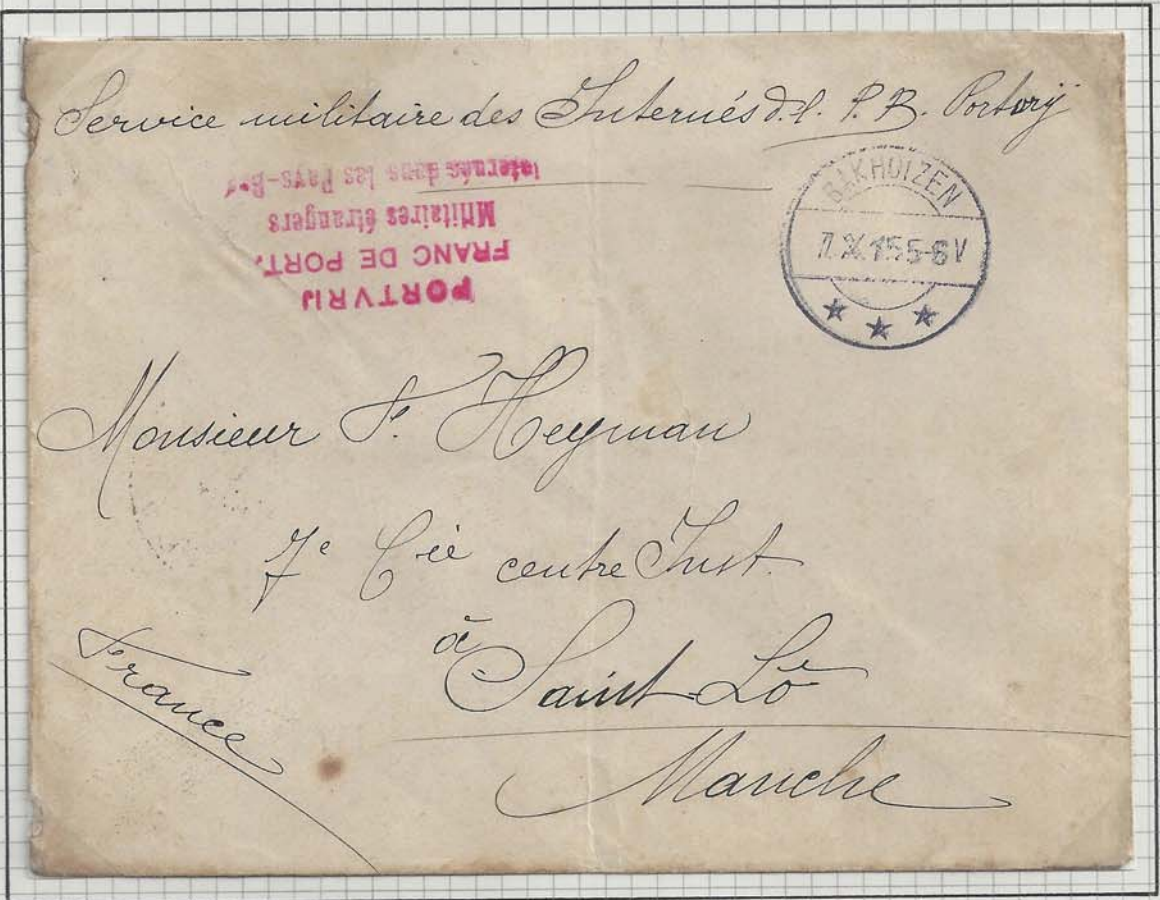 Service militaire des Internés d. l. P. B. Portvrij
PORTVRIJ
FRANC DE PORT.
Militaires étrangers
internés dans les Pays-Bas
BAKHUIZEN
7.X.15 5-6V
Monsieur F. Heyman
7e Cie centre Inst.
à Saint-Lô
Manche
France